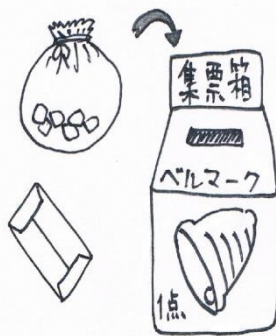 集票箱
ベルマーク
1点